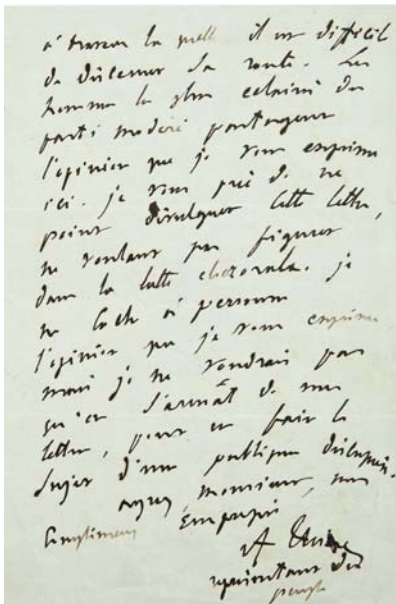 à travers la quelle il est difficil
de discerner sa route. Les
hommes les plus eclairés du
parti modéré partagent
l'opinion que je vous exprime
ici. je vous prie de ne
point divulguer cette lettre,
ne voulant pas figurer
dans la lutte electorale. je
ne cache à personne
l'opinion que je vous exprime
mais je ne voudrais pas
qu'on s'armât de ma
lettre, pour en faire le
sujet d'une publique discussion.
agréez, monsieur, mes
compliments empressés
A Thiers
représentant du
peuple